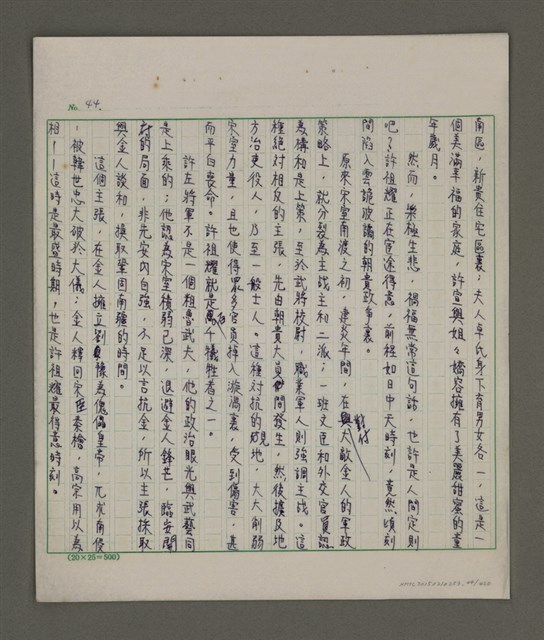 No. 44.
南區，新貴住宅區裏；夫人卓氏身下育男女各一，這是一
個美滿幸福的家庭，許宣與姐々橋容擁有了美麗甜蜜的童
年歲月。
然而，樂極生悲，禍福無常這句話，也許是人間定則
吧？許祖耀正在宦途得意，前程如日中天時刻，竟然頃刻
間陷入雲詭波譎的朝貴政爭裏。
原來宋室南渡之初，建炎年間，在對付大敵金人的軍政
策略上，就分裂為主戰主和二派；一班文臣和外交官員認
為構和是上策，至於武將校尉，職業軍人則強調主戰。這
種絕對相反的主張，先由朝貴大員間發生，然後擴及地
方治吏役人，乃至一般士人。這種對抗的現地，大大削弱
宋室力量，且也使得眾多官員掉入漩渦裏，受到傷害，甚
而平白喪命。許祖耀就是為個犧牲者之一。
許左將軍不是一個粗魯武夫，他的政治眼光與武藝同
是上乘的；他認為宋室積弱已深，退避金人鋒芒，臨安開
府的局面，非先安內自強，不足以言抗金，所以主張採取
與金人談和，換取鞏固南疆的時間。
這個主張，在金人擁立劉豫為傀儡皇帝，兀朮南侵
，被韓世忠大破於大儀；金人釋回宋臣秦檜，高宗用以為
相——這時是最盛時期，也是許祖耀最得意時刻。
(20×25=500)